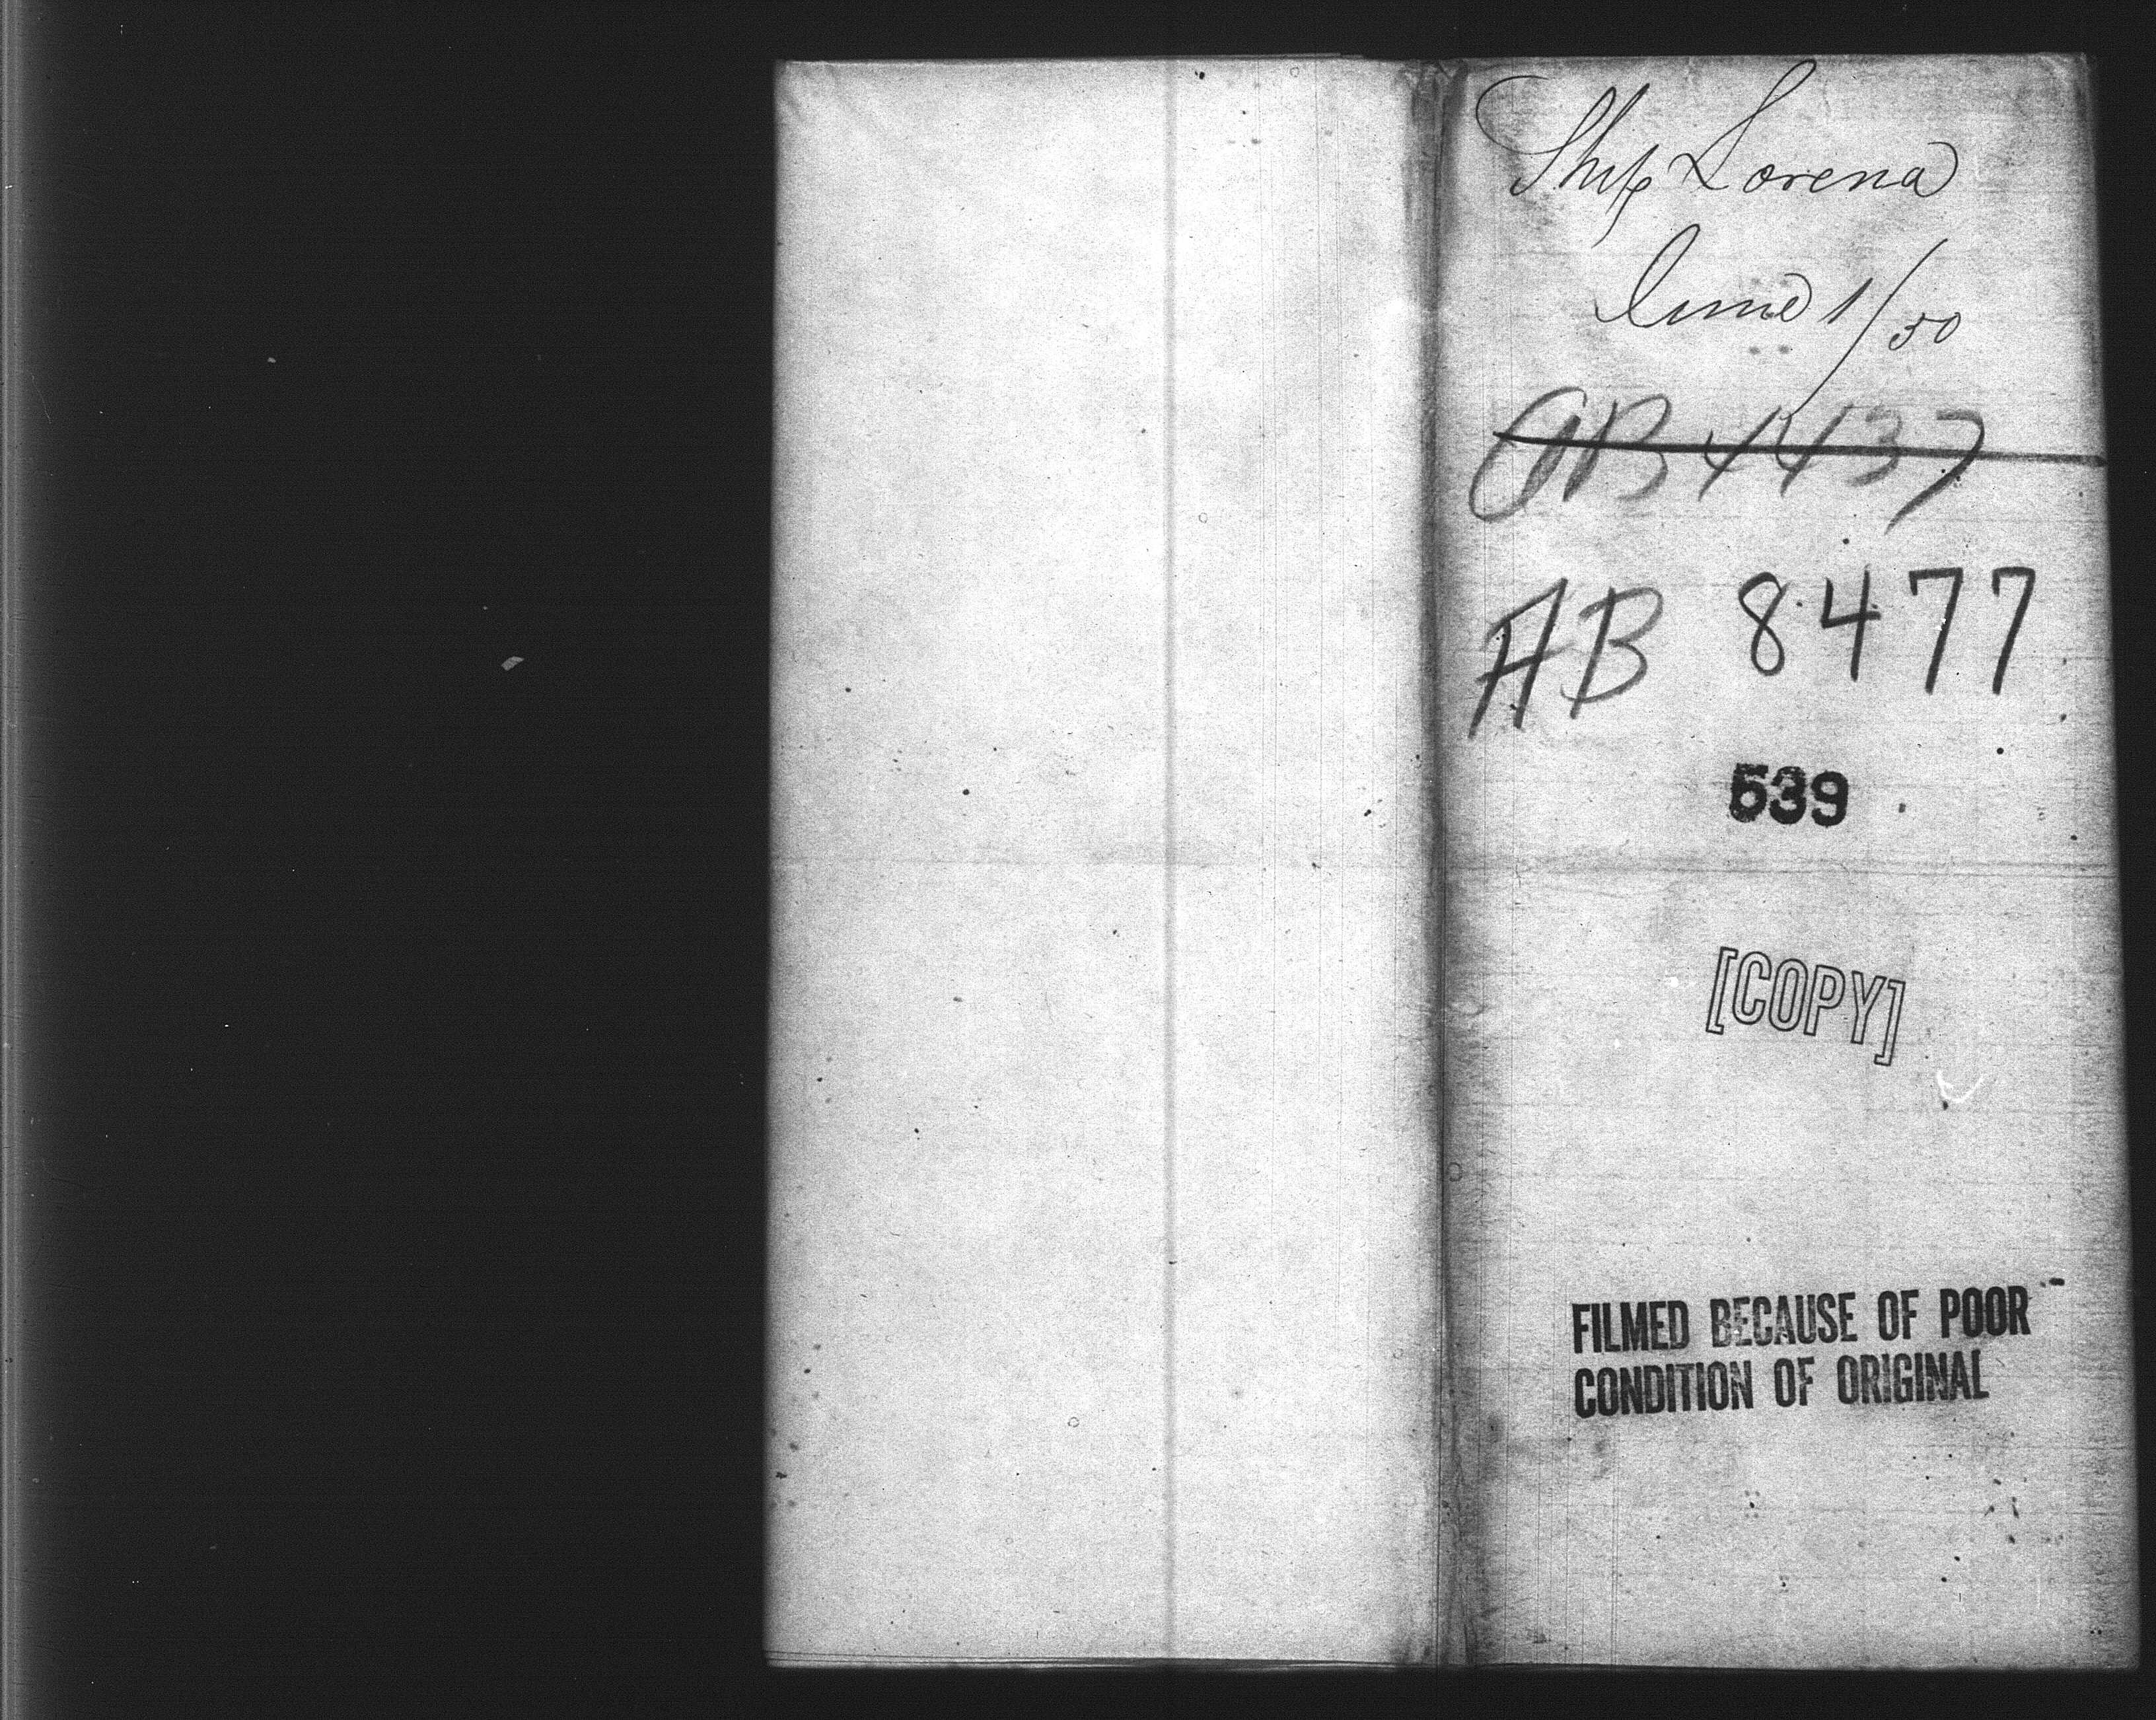 Ship Lorena
June 1/50
AB 4437
AB 8477
539
[COPY]
FILMED BECAUSE OF POOR
CONDITION OF ORIGINAL